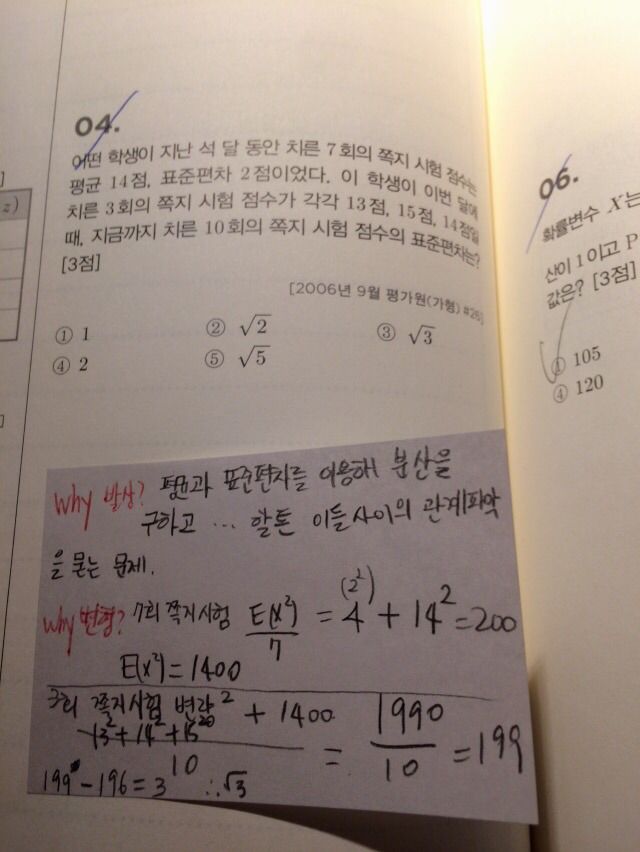 04.
어떤 학생이 지난 석 달 동안 치른 7회의 쪽지 시험 점수는
평균 14점, 표준편차 2점이었다. 이 학생이 이번 달에
치른 3회의 쪽지 시험 점수가 각각 13점, 15점, 14점일
때, 지금까지 치른 10회의 쪽지 시험 점수의 표준편차는?
[3점]
[2006년 9월 평가원(가형) #26]
① 1 ② √2 ③ √3
④ 2 ⑤ √5
why 발상? 평균과 표준편차를 이용해 분산을
구하고 … 할튼 이들사이의 관계파악
을 묻는 문제.
why 변형? 7회 쪽지시험 E(x²)/7 = 4 (2²) + 14² = 200
E(x²) = 1400
3회 쪽지시험
13² + 14² + 15² + 1400 / 10 = 1990/10 = 199
199 - 196 = 3 ∴ √3
z)
06.
확률변수 X는
산이 1이고 P
값은? [3점]
① 105
④ 120